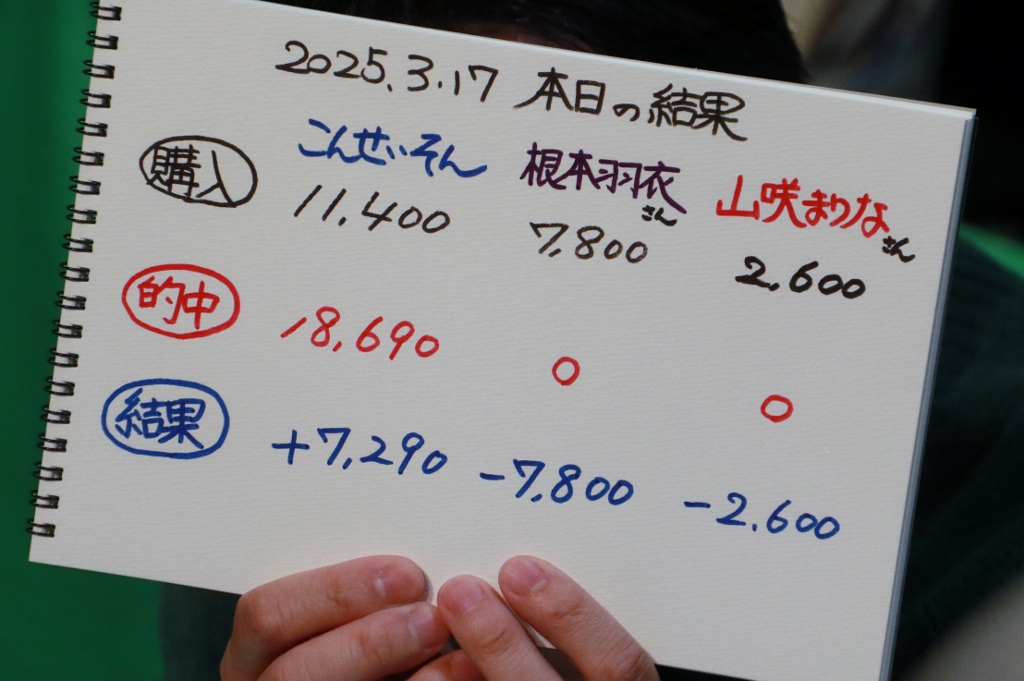 2025.3.17 本日の結果
こんせいそん 根本羽衣さん 山咲まりなさん
購入 11,400 7,800 2,600
的中 18,690 0 0
結果 +7,290 -7,800 -2.600